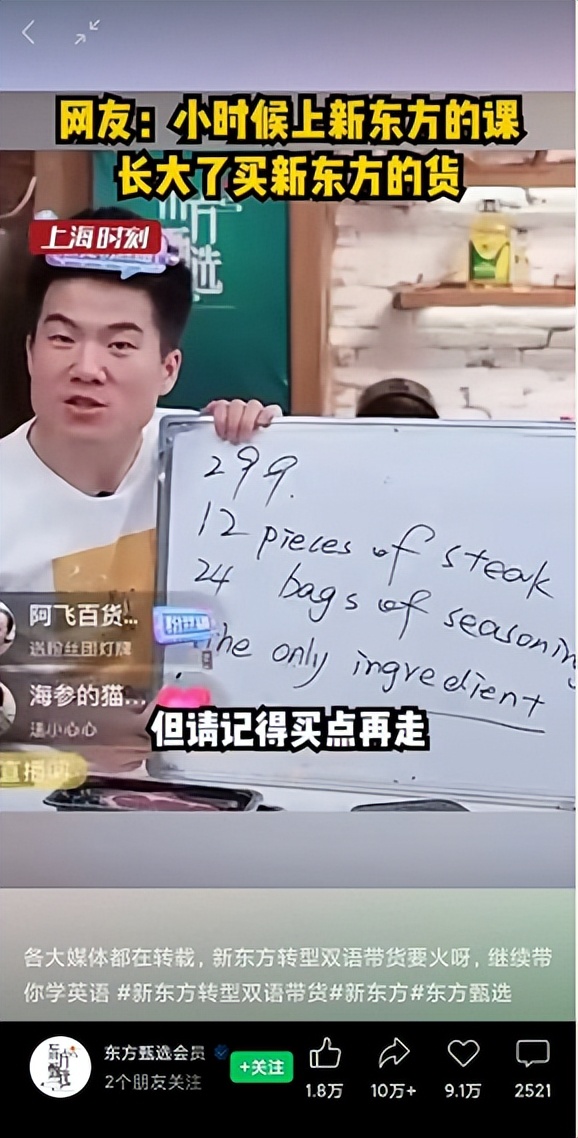 网友：小时候上新东方的课
长大了买新东方的货
上海时刻
方
选
299.
12 pieces of steak
24 bags of seasoning
the only ingredient
阿飞百货...
送粉丝团灯牌
海参的猫...
送小心心
直播
但请记得买点再走
各大媒体都在转载，新东方转型双语带货要火呀，继续带
你学英语 #新东方转型双语带货#新东方#东方甄选
东方甄选会员
2个朋友关注
+关注
1.8万
10万+
9.1万
2521